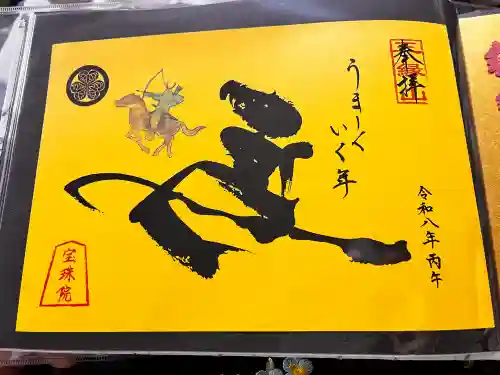 奉拝
うまーく
いく年
令和八年丙午
宝珠院